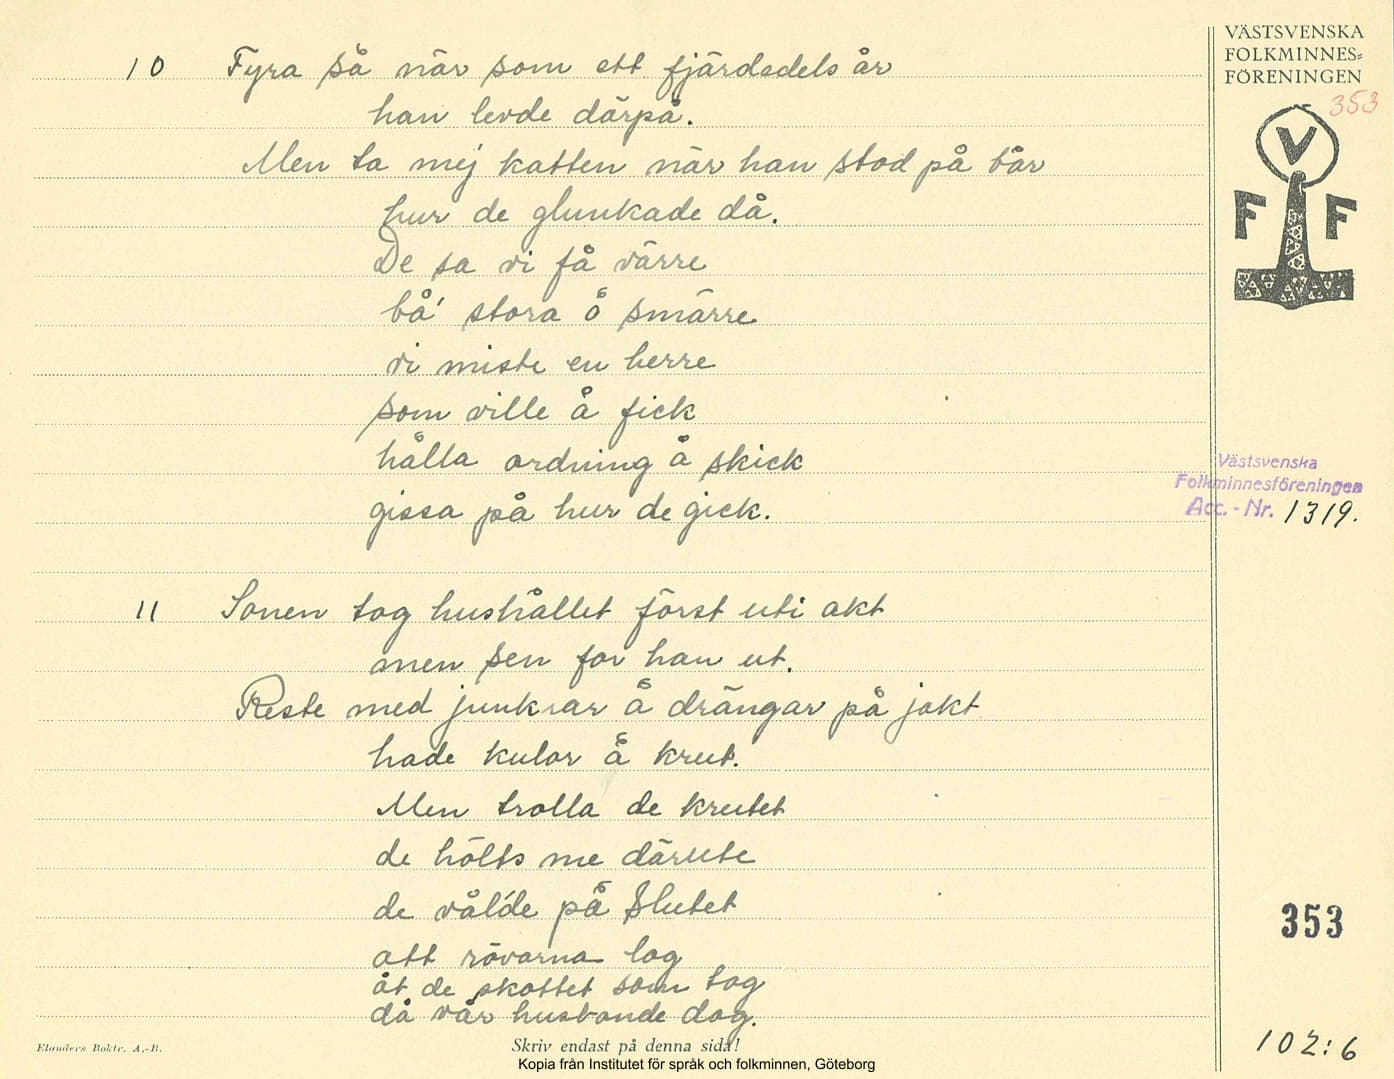 VÄSTSVENSKA
FOLKMINNES=
FÖRENINGEN
353
V
F F
10 Fyra så när som ett fjärdedels år
han levde därpå.
Men ta mej katten när han stod på bår
hur de glunkade då.
De sa vi få värre
bå' stora å smärre
vi miste en herre
som ville å fick
hålla ordning å skick
gissa på hur de gick.
Västsvenska
Folkminnesföreningen
Acc.-Nr. 1319.
11 Sonen tog hushållet först uti akt
men sen for han ut.
Reste med junkrar å drängar på jakt
hade kulor å krut.
Men trolla de krutet
de hölts me därute
de vålde på slutet
att rövarna log
åt de skottet som tog
då vår husbonde dog.
353
102:6
Elanders Boktr. A.-B.
Skriv endast på denna sida!
Kopia från Institutet för språk och folkminnen, Göteborg